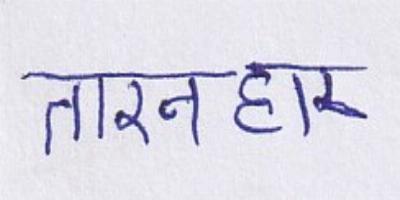 तारन हार